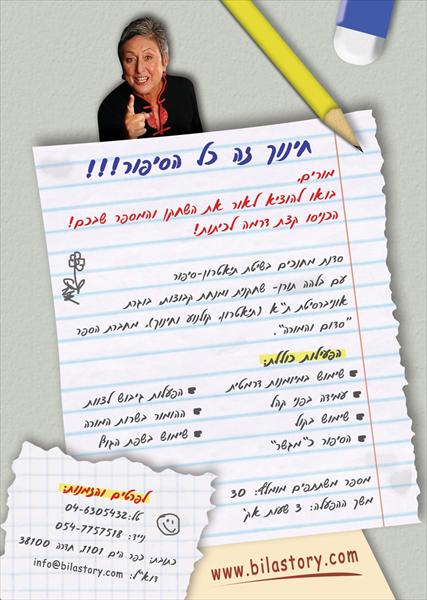 חינוך זה כל הסיפור!!!
מורים,
בואו להוציא לאור את השחקן והמספר שבכם!
הכניסו קצת דרמה לכיתות!
סדנת מחנכים בשיטת תיאטרון-סיפור
עם בלהה תורן- שחקנית ומנחת קבוצות בוגרת
אוניברסיטת ת"א (תיאטרון, קולנוע וחינוך), מחברת הספר
"סדום והמורה".
הפעילות כוללת:
שימוש במיומנות דרמטית
עמידה בפני קהל
שימוש בקול
הסיפור כ"מגשר"
הפעלות גיבוש לצוות
ההומור בשרות המורה
שימוש בשפת הגוף
מספר משתתפים מומלץ: 30
משך ההפעלה: 3 שעות אק'
לפרטים והזמנות:
טל: 04-6305432
נייד: 054-7757518
כתובת: כפר הים 101ג חדרה 38100
דוא"ל: info@bilastory.com
www.bilastory.com